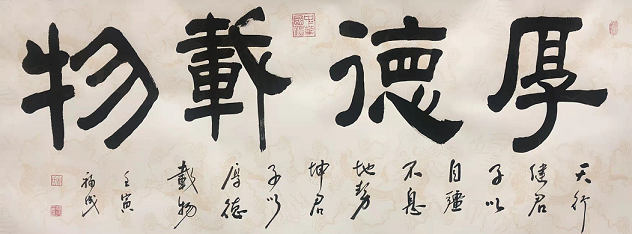 厚德載物
天行
健君
子以
自疆
不息
地势
坤君
子以
厚德
載物
壬寅